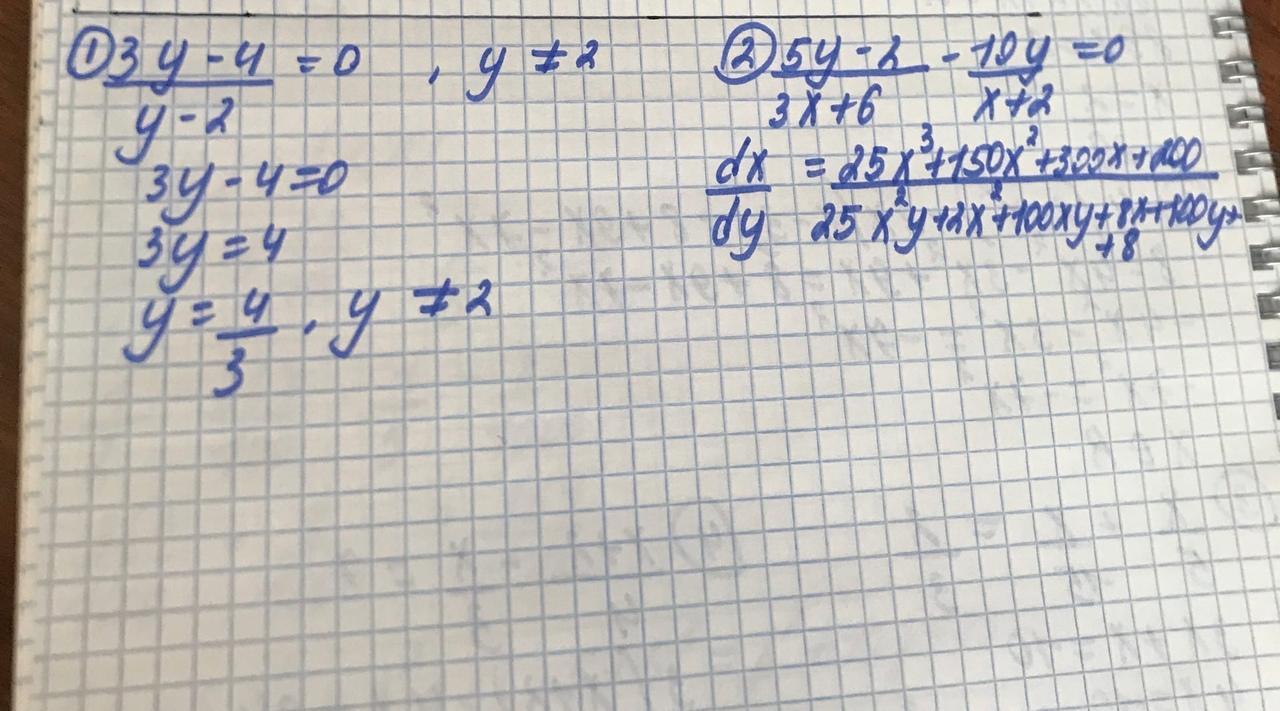 ① 3y-4/y-2 = 0 , y ≠ 2
3y-4=0
3y=4
y = 4/3 , y ≠ 2
② 5y-2/3x+6 - 10y/x+2 = 0
dx/dy = 25x³+150x²+300x+200/25x²y+2x²+100xy+8x+100y+
+8